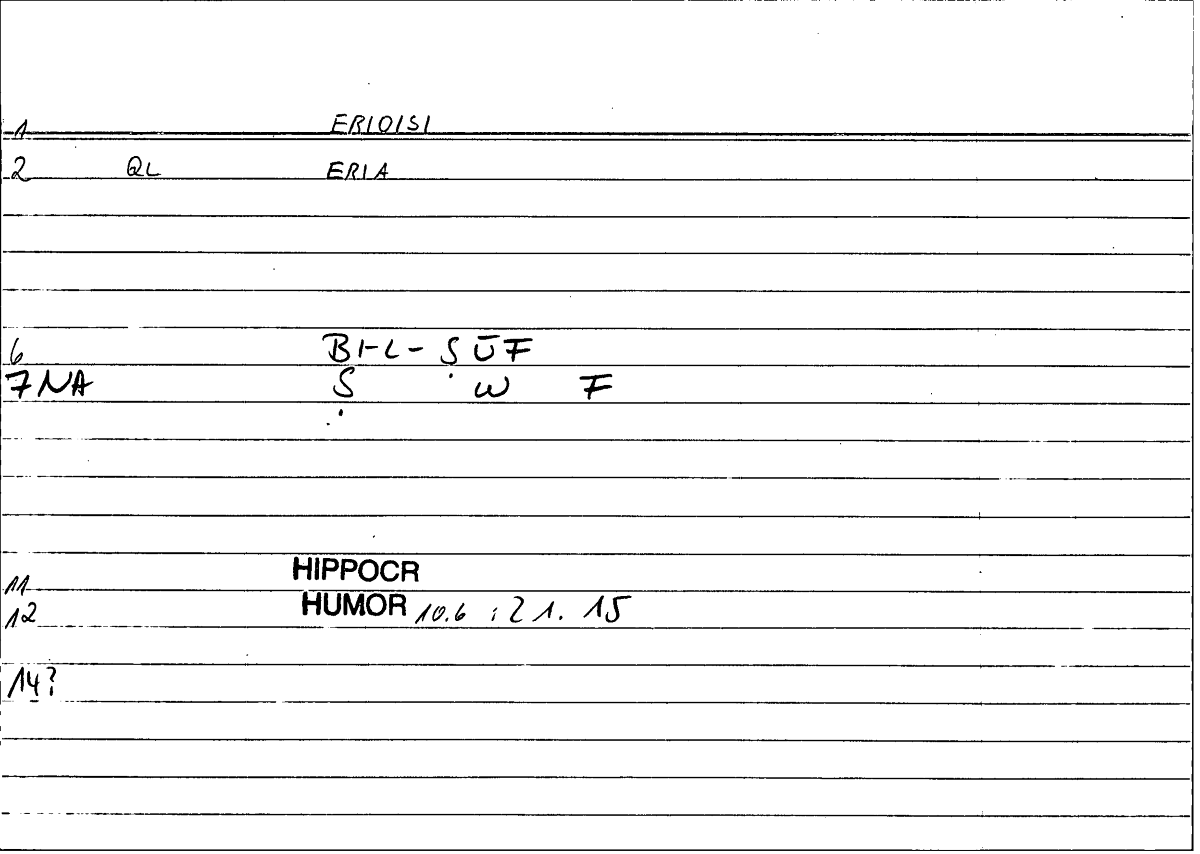 1 ERIOISI
2 QL ERIA
6 BI-L-ṢŪF
7 NA Ṣ W F
11 HIPPOCR
12 HUMOR 10.6 ; 21. 15
14?